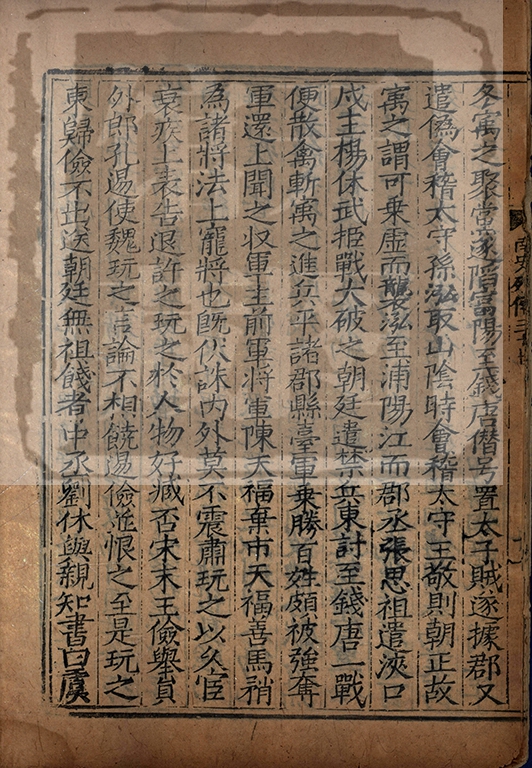 冬寓之聚黨遂陷富陽至錢唐僭号置太子賊遂據郡又
遣僞會稽太守孫泓取山陰時會稽太守王敬則朝正故
寓之謂可乗虛而襲泓至浦陽江而郡丞張思祖遣浹口
戍主楊休武拒戰大破之朝廷遣禁兵東討至錢唐一戰
便散禽斬寓之進兵平諸郡縣臺軍乗勝百姓頗被強奪
軍還上聞之収軍主前軍將軍陳天福棄市天福善馬矟
為諸將法上寵將也旣伏誅内外莫不震肅玩之以乆宦
衰疾上表告退許之玩之於人物好臧否宋末王儉舉貟
外郎孔逷使魏玩之言論不相饒逷儉並恨之至是玩之
東歸儉不出送朝廷無祖餞者中丞劉休與親知書曰虞